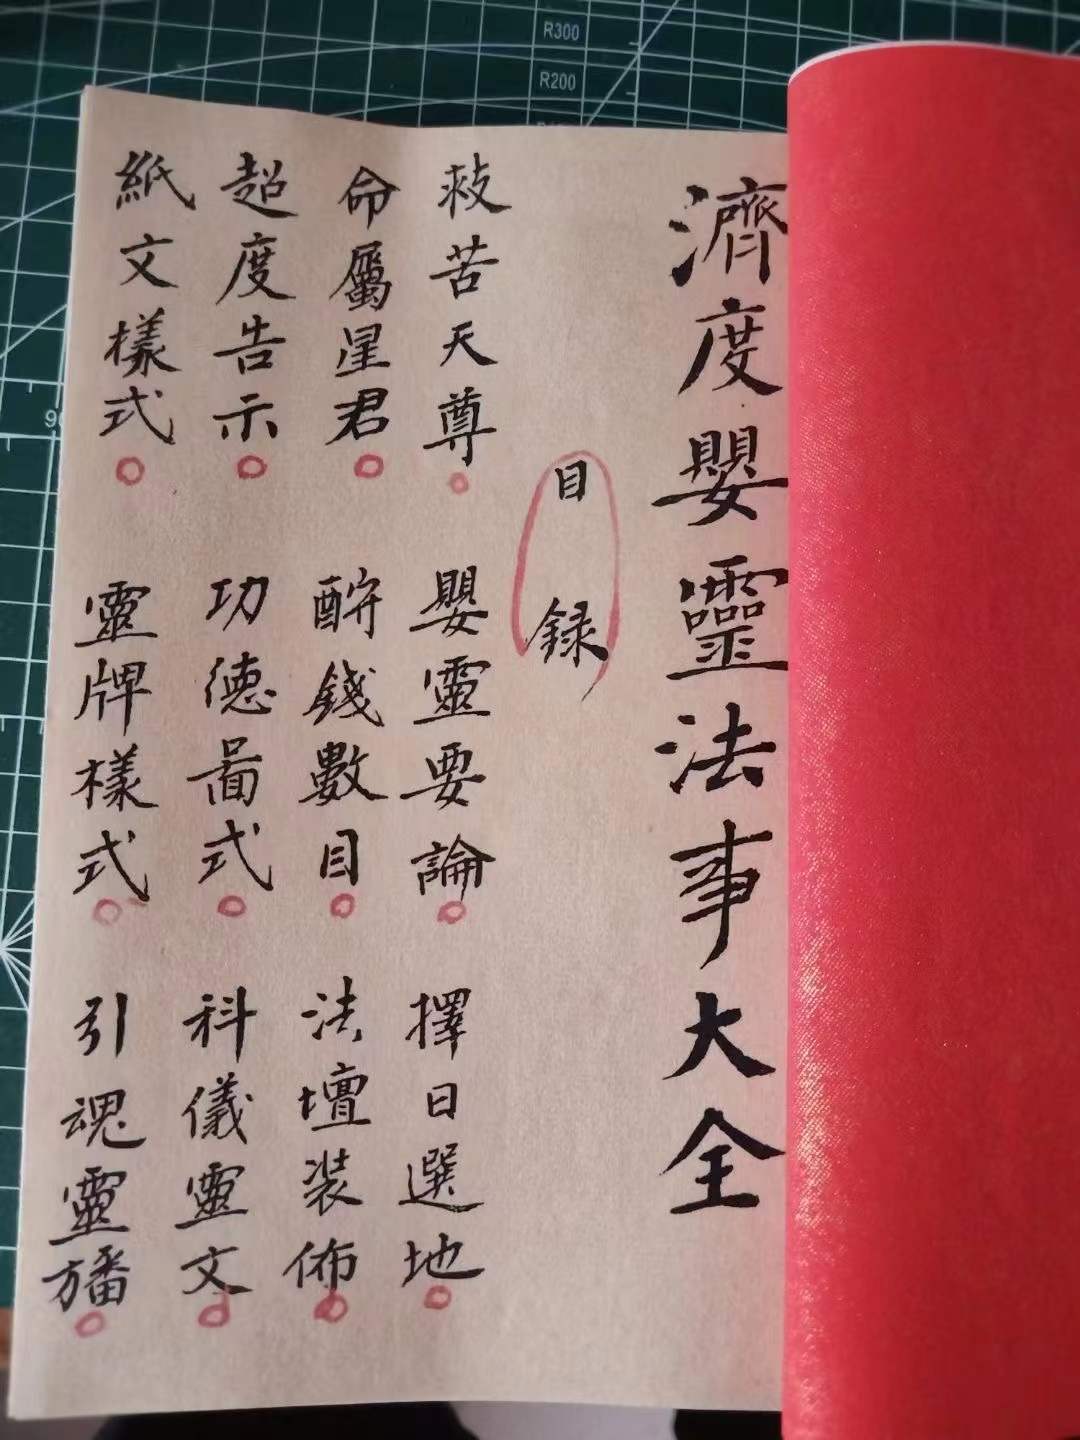 濟度嬰靈法事大全
目録
救苦天尊 嬰靈要論 擇日選地
命屬星君 酧錢數目 法壇裝佈
超度告示 功德啚式 科儀靈文
紙文樣式 靈牌樣式 引魂靈旛
R300
R200